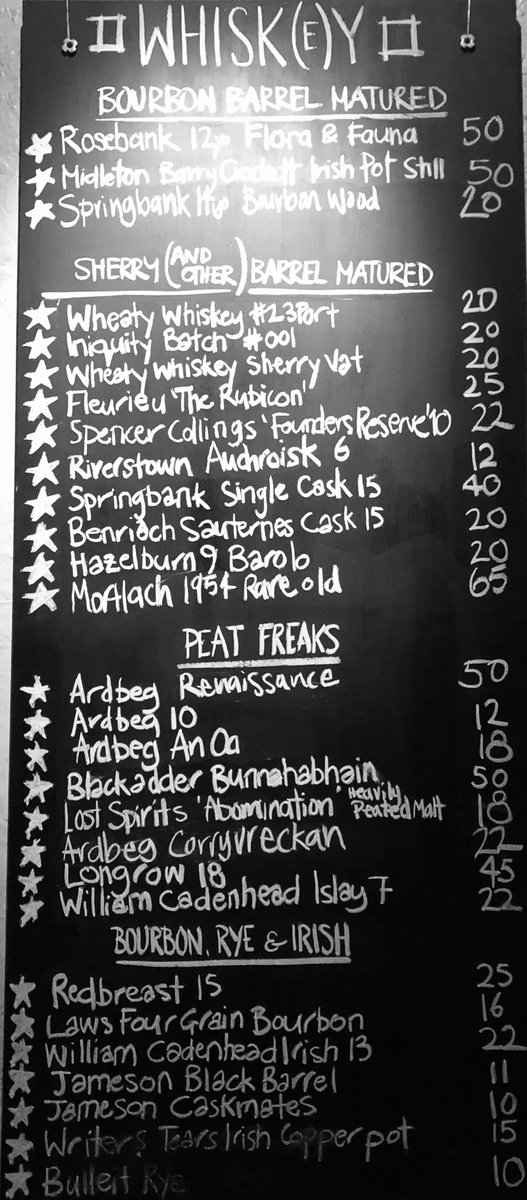 WHISK(E)Y
BOURBON BARREL MATURED
Rosebank 12yo Flora & Fauna 50
Midleton Barry Crockett Irish Pot Still 50
Springbank Bourbon Wood 20
SHERRY (AND OTHER) BARREL MATURED
Wheaty Whiskey #23 Port 20
Iniquity Batch #001 20
Wheaty Whiskey Sherry Vat 20
Fleurieu 'The Rubicon' 25
Spencer Collings 'Founders Reserve' 10 22
Riverstown Auchroisk 6 12
Springbank Single Cask 15 40
Benrioch Sauternes Cask 15 20
Hazelburn 9 Barolo 20
Mortlach 1954 Rare old 65
PEAT FREAKS
Ardbeg Renaissance 50
Ardbeg 10 12
Ardbeg An Oa 18
Blackadder Bunnahabhain 50
Lost Spirits 'Abomination' Heavily Peated Malt 18
Ardbeg Corryvreckan 22
Longrow 18 45
William Cadenhead Islay 7 22
BOURBON, RYE & IRISH
Redbreast 15 25
Laws Four Grain Bourbon 16
William Cadenhead Irish 13 22
Jameson Black Barrel 11
Jameson Caskmates 10
Writers Tears Irish Copper pot 15
Bulleit Rye 10